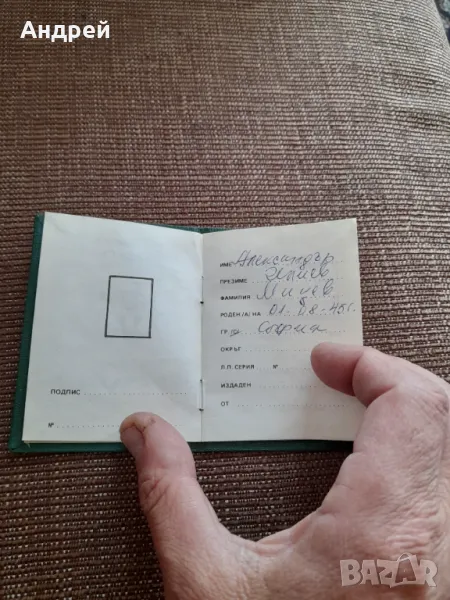 Андрей
ПОДПИС
№
ИМЕ Александър
ПРЕЗИМЕ
ФАМИЛИЯ Милев
РОДЕН /А/ НА 01.08.45г.
ГР. София
ОКРЪГ
Л.П. СЕРИЯ №
ИЗДАДЕН
ОТ
BAZAR